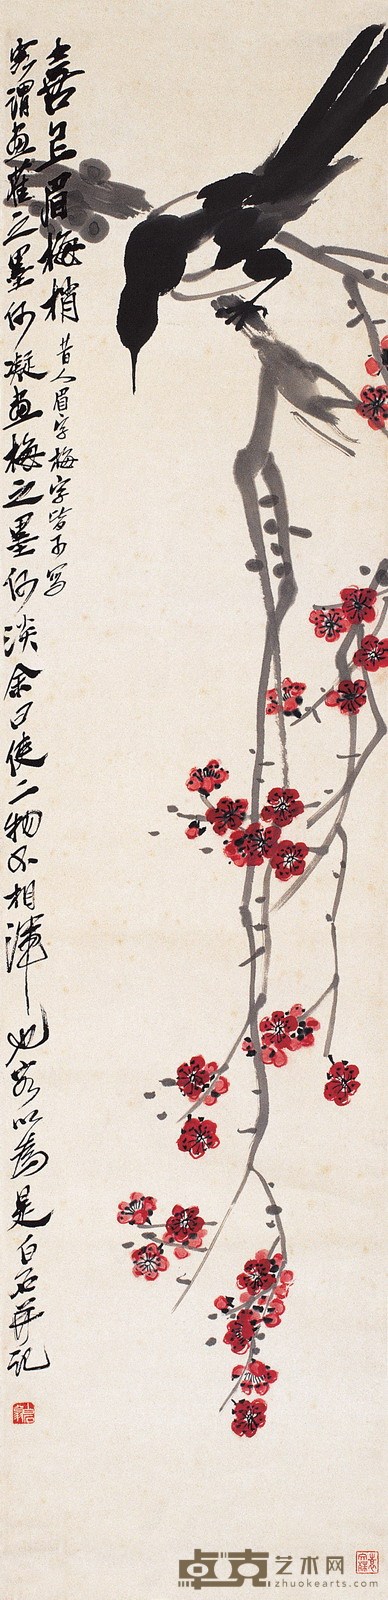 喜上眉梅梢
昔人眉字梅字皆可写
客谓画雀之墨何凝画梅之墨何淡余曰使二物不相浑也客以为是白石并记
卓克艺术网
zhuokearts.com